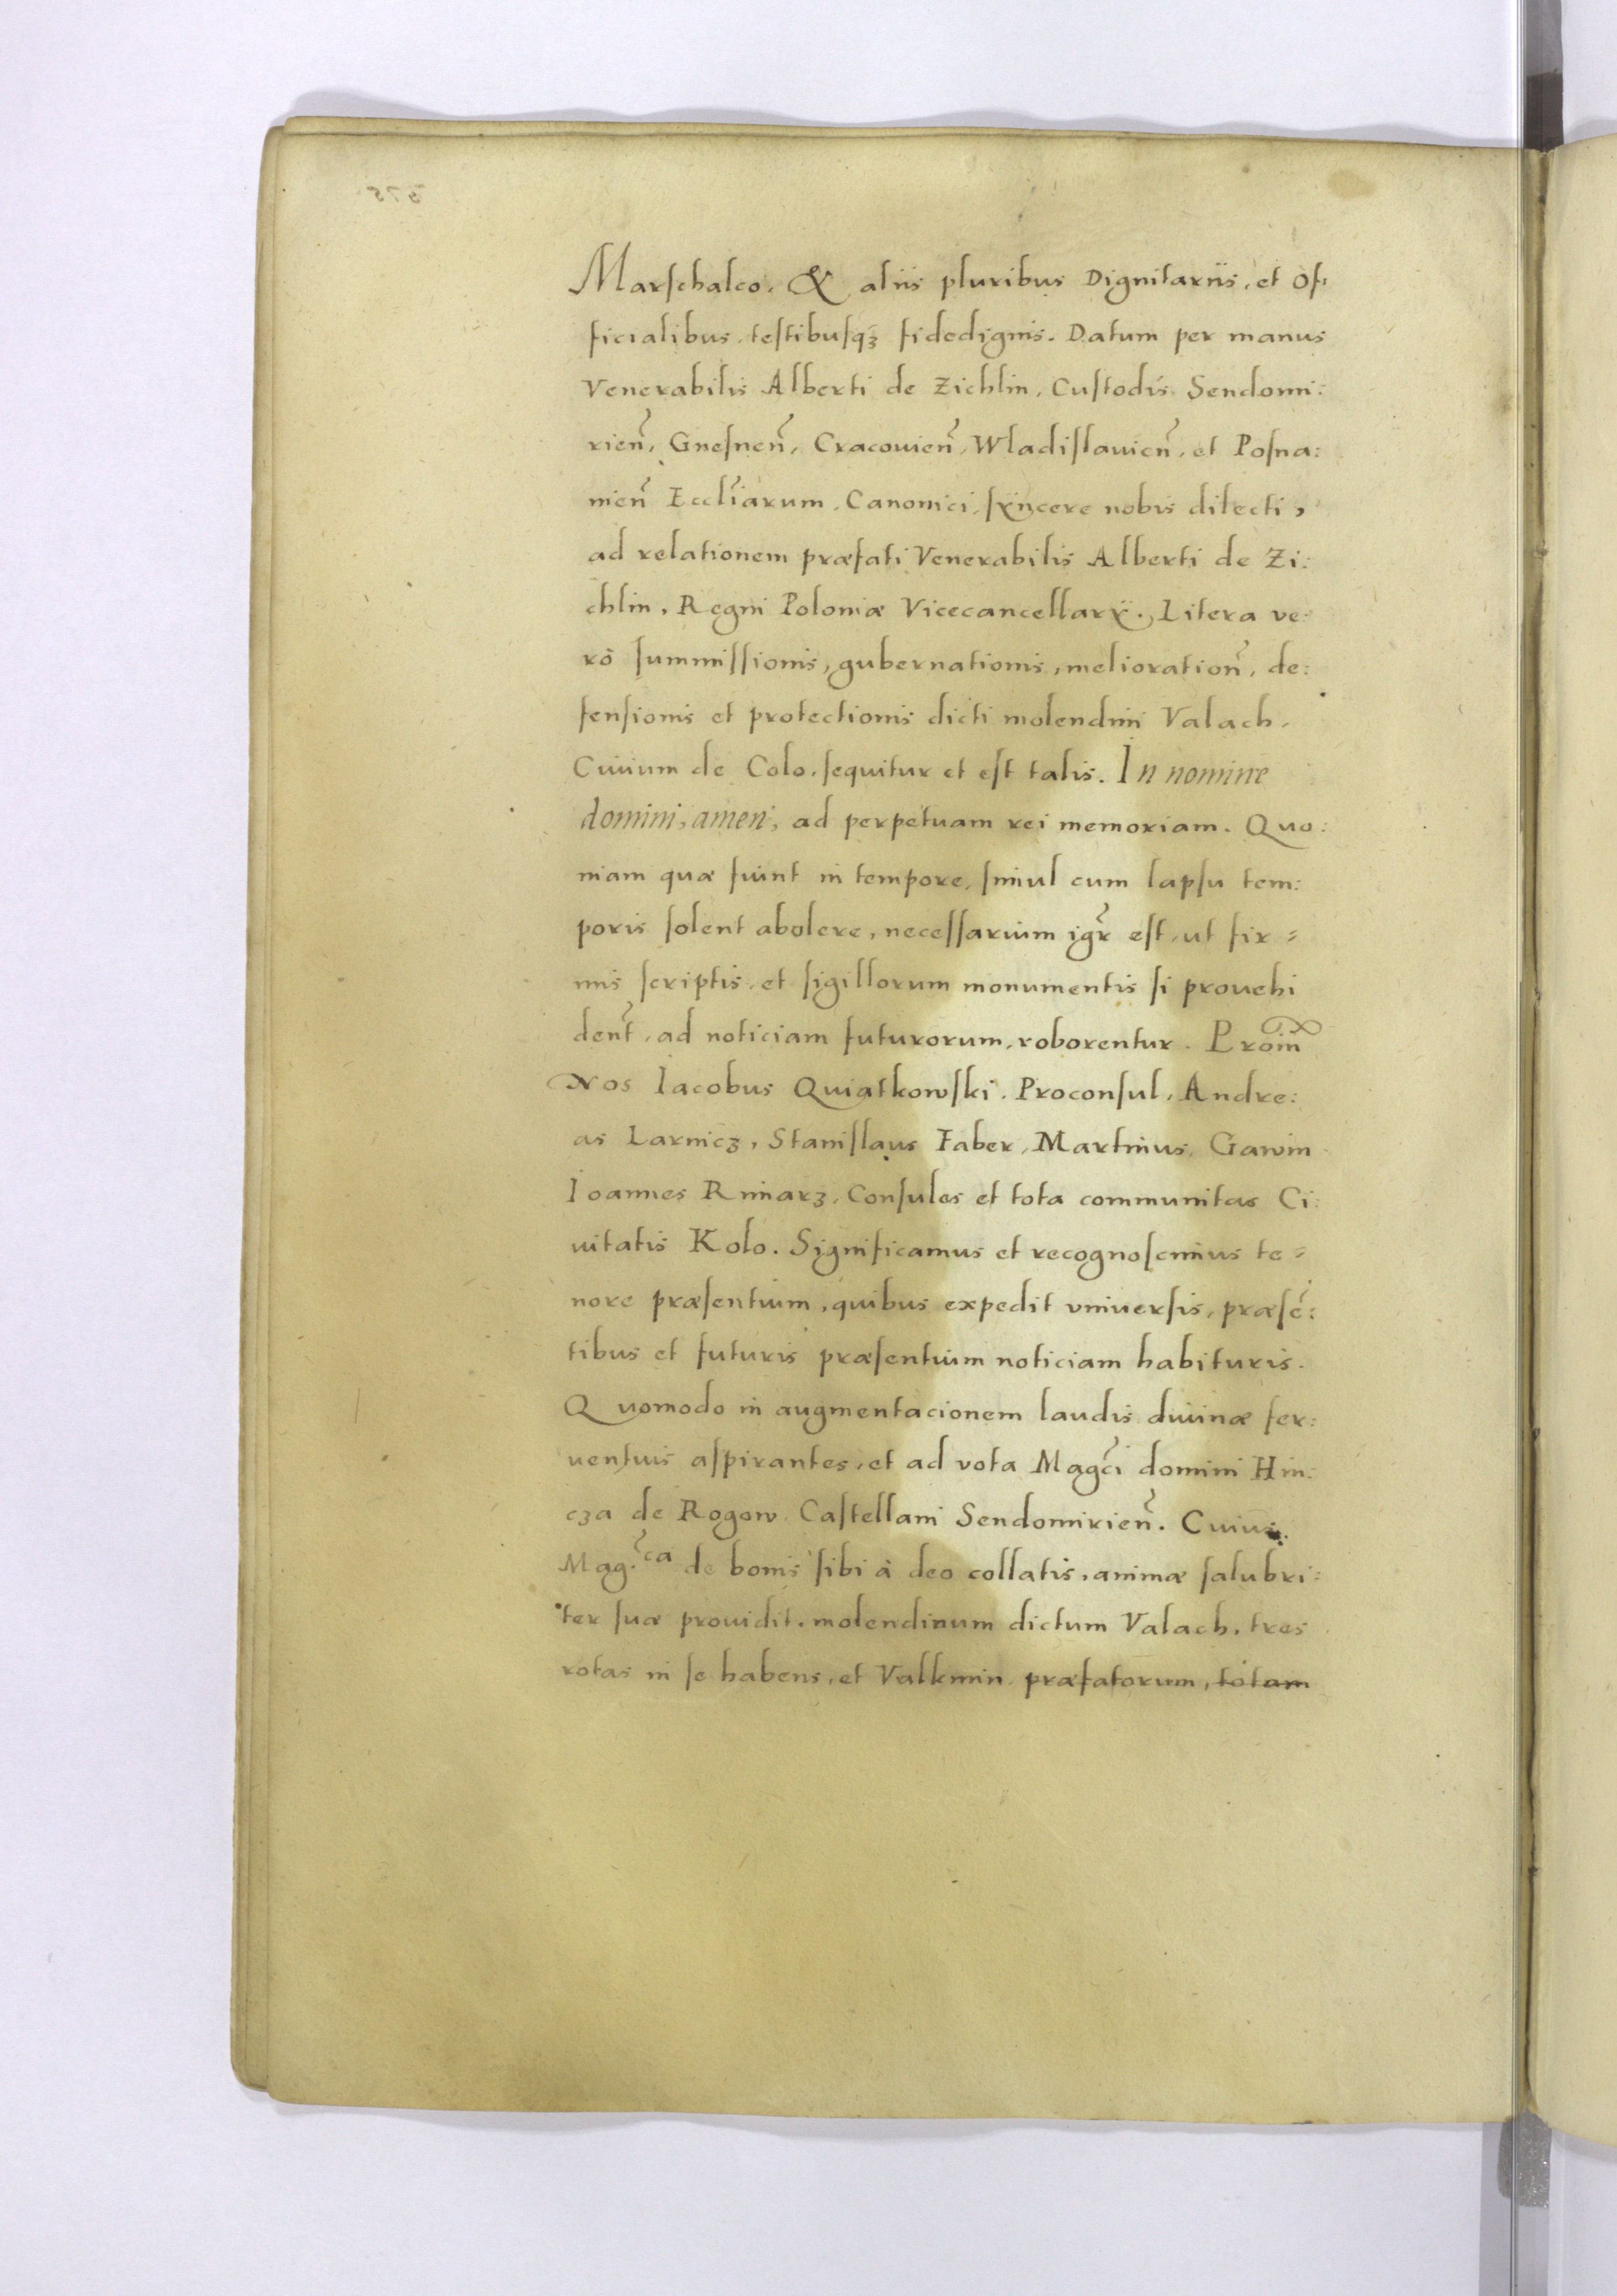 Marſchalco, & aliis pluribus Dignitariis, et Of:
ficialibus, teſtibuſqꝫ fidedignis. Datum per manus
Venerabilis Alberti de Zichlin, Cuſtodis Sendomi:
rien̄, Gneſnen̄, Cracouien̄, Wladiſlauien̄, et Poſna:
nien̄ Eccl̄iarum, Canonici, ſyncere nobis dilecti,
ad relationem præfati Venerabilis Alberti de Zi:
chlin, Regni Poloniæ Vicecancellarÿ. Litera ve:
rò ſummiſſionis, gubernationis, melioration̄, de:
fenſionis et protectionis dicti molendini Valach,
Ciuium de Colo, ſequitur et eſt talis. In nomine
domini, amen, ad perpetuam rei memoriam. Quo:
niam quæ fiunt in tempore, ſimul cum lapſu tem:
poris ſolent abolere, neceſſarium igr̄ eſt, ut fir=
mis ſcriptis, et ſigillorum monumentis ſi prouehi
den̄t, ad noticiam futurorum, roborentur. Proin̄
Nos Iacobus Quiatkowſki, Proconſul, Andre:
as Larnicz, Staniſlaus Faber, Martinus, Gawin
Ioannes Rimarz, Conſules et tota communitas Ci:
uitatis Kolo. Significamus et recognoſcimus te=
nore præſentium, quibus expedit vniuerſis, præſē:
tibus et futuris præſentium noticiam habituris.
Quomodo in augmentacionem laudis diuinæ fer:
uentius aſpirantes, et ad vota Magc̄i domini Hin:
cza de Rogow Caſtellani Sendomirien̄. Cuius
Mag.ca de bonis ſibi à deo collatis, animæ ſalubri:
ter ſuæ prouidit, molendinum dictum Valach, tres
rotas in ſe habens, et Valkmin præfatorum, totam